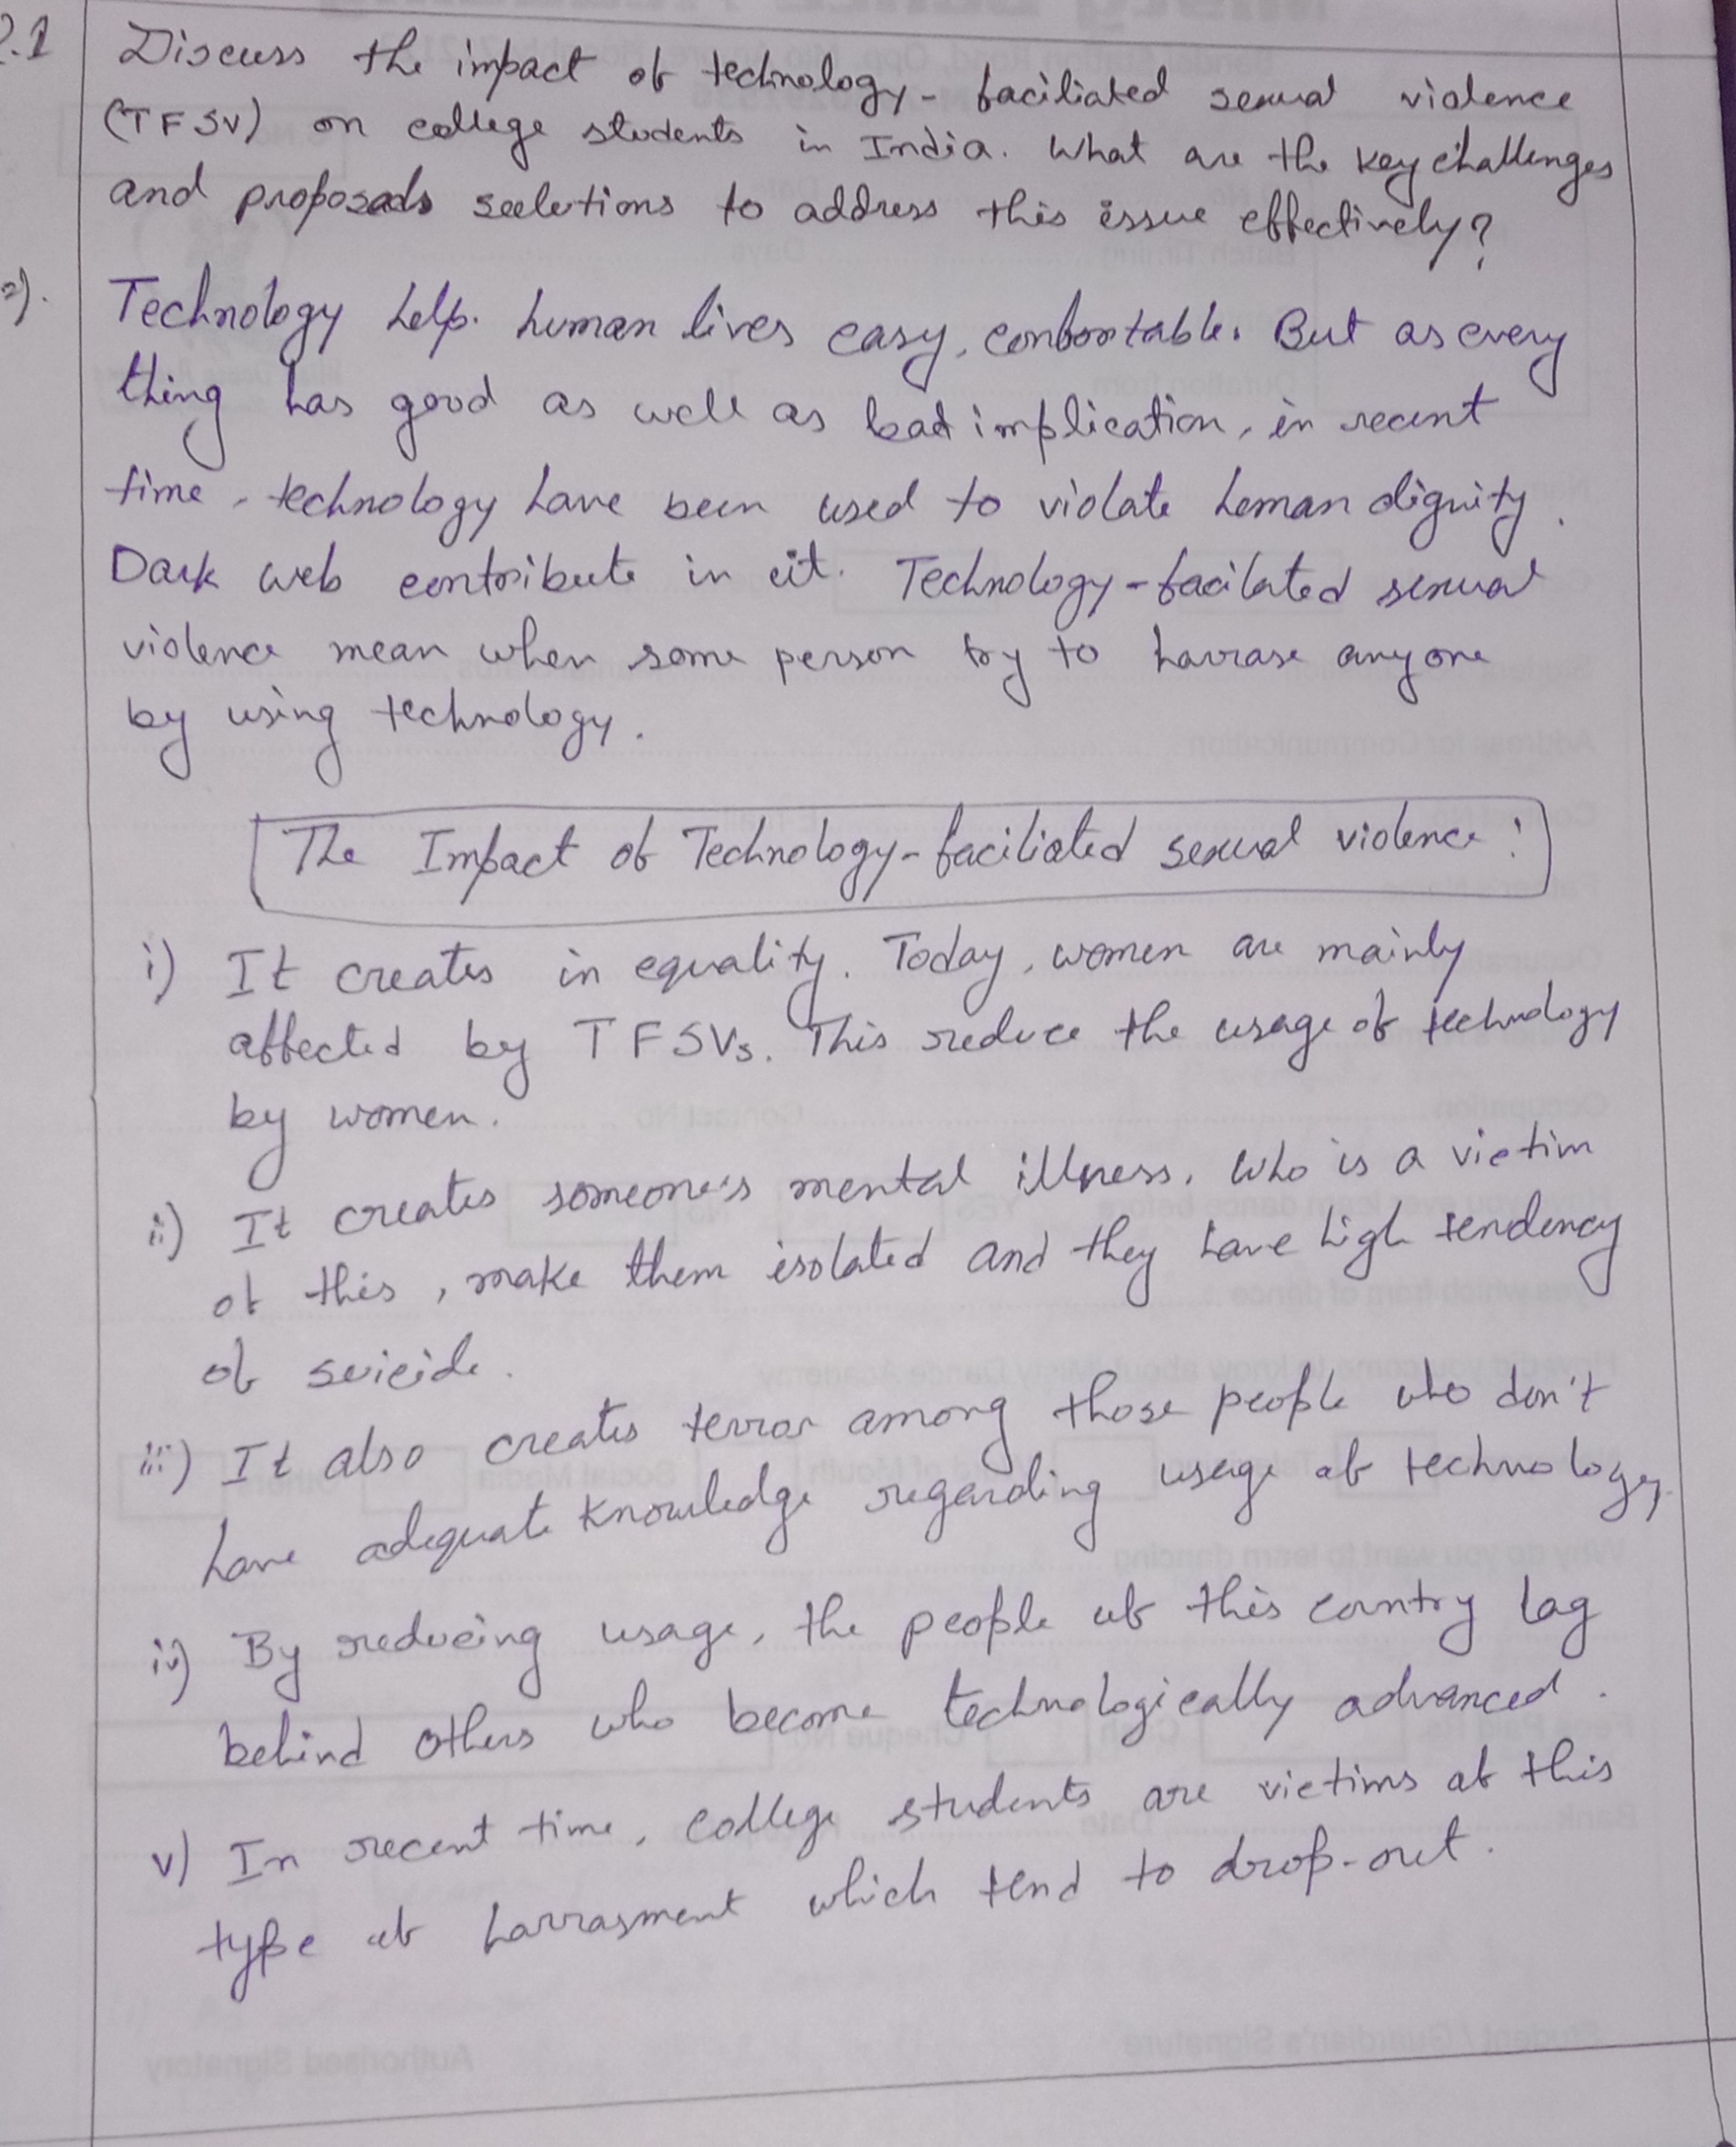 Q.1 Discuss the impact of technology-faciliated sexual violence
(TFSV) on college students in India. What are the key challenges
and proposals solutions to address this issue effectively?
=). Technology help. human lives easy, confortable. But as every
thing has good as well as bad implication, in recent
time, technology have been used to violate human dignity.
Dark web contribute in it. Technology-facilated sexual
violence mean when some person try to harrase anyone
by using technology.
The Impact of Technology-faciliated sexual violence:
i) It creates in equality. Today, women are mainly
affected by TFSVs. This reduce the usage of technology
by women.
ii) It creates someone's mental illness. Who is a victim
of this, make them isolated and they have high tendency
of suicide.
iii) It also creates terror among those people who don't
have adequate knowledge regarding usage of technology.
iv) By reducing usage, the people of this country lag
behind others who become technologically advanced.
v) In recent time, college students are victims of this
type of harrasment which tend to drop-out.